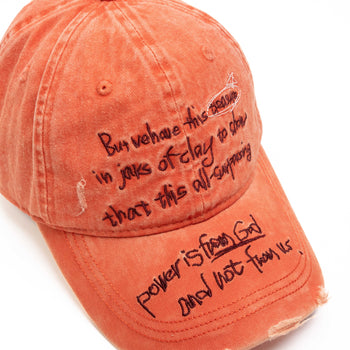 But we have this treasure
in jars of clay to show
that this all-surpassing
power is from God
and not from us.